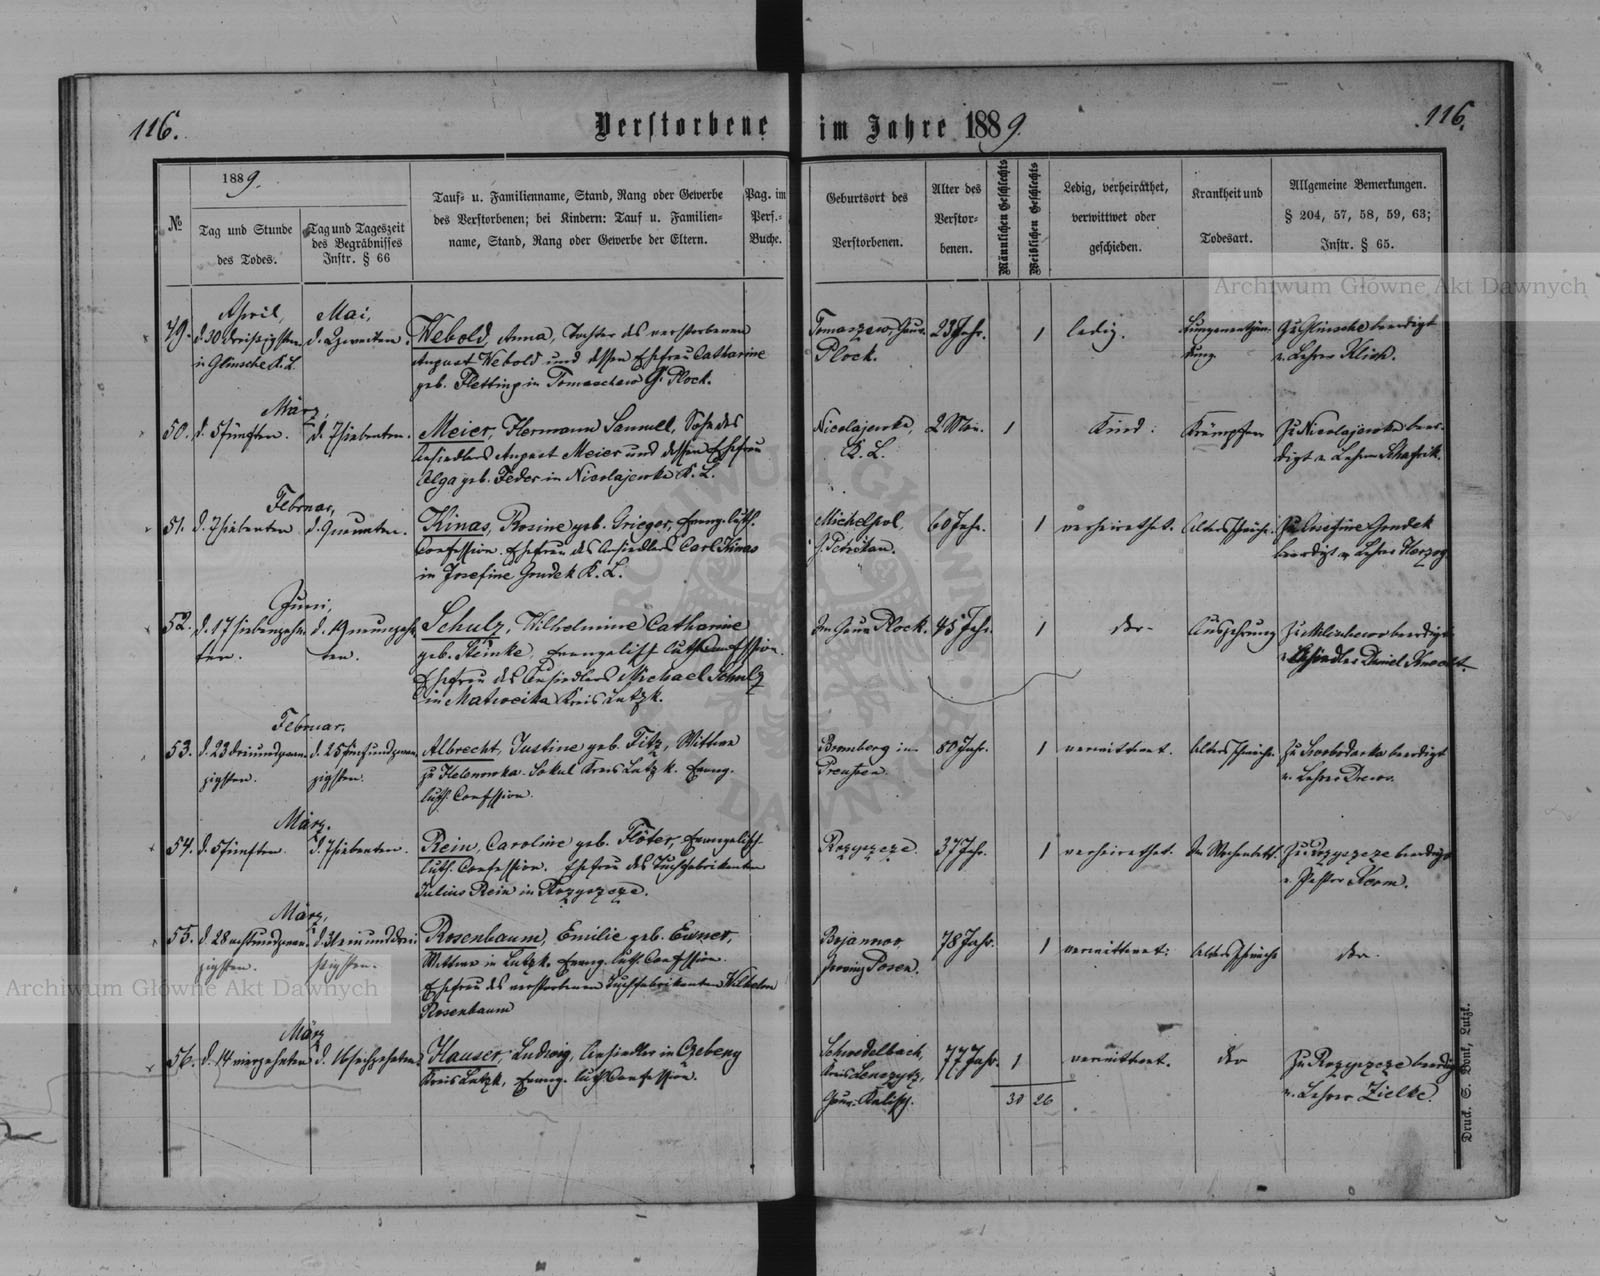 116.
Verstorbene im Jahre 1889.
116.
№
1889.
Tag und Stunde
des Todes.
Tag und Tageszeit
des Begräbnisses
Instr. § 66
Tauf- u. Familienname, Stand, Rang oder Gewerbe
des Verstorbenen; bei Kindern: Tauf u. Familien-
name, Stand, Rang oder Gewerbe der Eltern.
Pag. im
Pers.-
Buche.
Geburtsort des
Verstorbenen.
Alter des
Verstor-
benen.
Männlichen Geschlechts
Weiblichen Geschlechts
Ledig, verheirathet,
verwittwet oder
geschieden.
Krankheit und
Todesart.
Allgemeine Bemerkungen.
§ 204, 57, 58, 59, 63;
Instr. § 65.
49.
April,
d. 30 dreißigsten
in Glinsche K. L.
Mai,
d. 2 zweiten
Webold, Anna, Tochter des verstorbenen
August Webold und dessen Ehefrau Catharine
geb. Fletting in Tomaschew G. Plock.
Tomaszew, Gouv.
Plock.
23 Jahr.
1
ledig.
Lungenentzün-
dung
Zu Glinsche beerdigt
v. Lehrer Klich.
50.
März,
d. 5 fünften.
d. 7 siebenten.
Meier, Hermann Samuel, Sohn des
Ansiedlers August Meier und dessen Ehefrau
Olga geb. Feder in Nicolajewka K. L.
Nicolajewka,
K. L.
2 Mon.
1
Kind.
Krämpfen
Zu Nicolajewka beer-
digt v. Lehrer
51.
Februar,
d. 7 siebenten
d. 9 neunten.
Kinas, Rosine geb. Grieger, Evang. luth.
Confession. Ehefrau des Ansiedlers Carl Kinas
in Josefine Gondek K. L.
Michelpol,
G. Petrokau.
60 Jahr.
1
verheirathet.
Altersschwäche.
Zu Josefine Gondek
beerdigt v. Lehrer Herzog
52.
Juni,
d. 17 siebenzehn-
ten.
d. 19 neunzehn-
ten.
Schulz, Wilhelmine Catharine
geb. Steinke, Evangelisch luth. Confession.
Ehefrau des Ansiedlers Michael Schulz
in Matweika Kreis Lutzk.
Im Gouv. Plock.
45 Jahr.
1
do-
Auszehrung
beerdigt
v. Ansiedler Daniel Knecht.
53.
Februar,
d. 23 dreiundzwan-
zigsten.
d. 25 fünfundzwan-
zigsten.
Albrecht, Justine geb. Titz, Wittwe
zu Helenowka. Sokul Kreis Lutzk. Evang.
luth. Confession.
Bromberg in
Preußen.
80 Jahr.
1
verwittwet.
Altersschwäche.
Zu Swobodarka beerdigt
v. Lehrer Drews.
54.
März.
d. 5 fünften
d. 7 siebenten.
Rein, Caroline geb. Flöter, Evangelisch
luth. Confession. Ehefrau des Tuchfabrikanten
Julius Rein in Rozyszcze.
Rozyszcze.
37 Jahr.
1
verheirathet.
Im Wochenbett.
Zu Rozyszcze beerdigt
v. Pastor Kerm.
55.
März,
d. 28 achtundzwan-
zigsten.
d. 31 einunddrei-
ßigsten.
Rosenbaum, Emilie geb. Eisner,
Wittwe in Lutzk. Evang. luth. Confession.
Ehefrau des verstorbenen Tuchfabrikanten Wilhelm
Rosenbaum
Bojanowo,
Provinz Posen.
78 Jahr.
1
verwittwet.
Altersschwäche
do-
56.
März
d. 14 vierzehnten
d. 16 sechzehnten.
Hauser, Ludwig, Ansiedler in Ozebeny
Kreis Lutzk, Evang. luth. Confession.
Schwedelbach,
Kreis Lenczytz,
Gouv. Kalisch.
77 Jahr.
1
verwittwet.
do
Zu Rozyszcze beerdigt
v. Lehrer Zielke.
30 26
Druck. S. Bonk, Lutzk.
Archiwum Główne Akt Dawnych
Archiwum Główne Akt Dawnych
ARCHIWUM GŁÓWNE AKT DAWNYCH